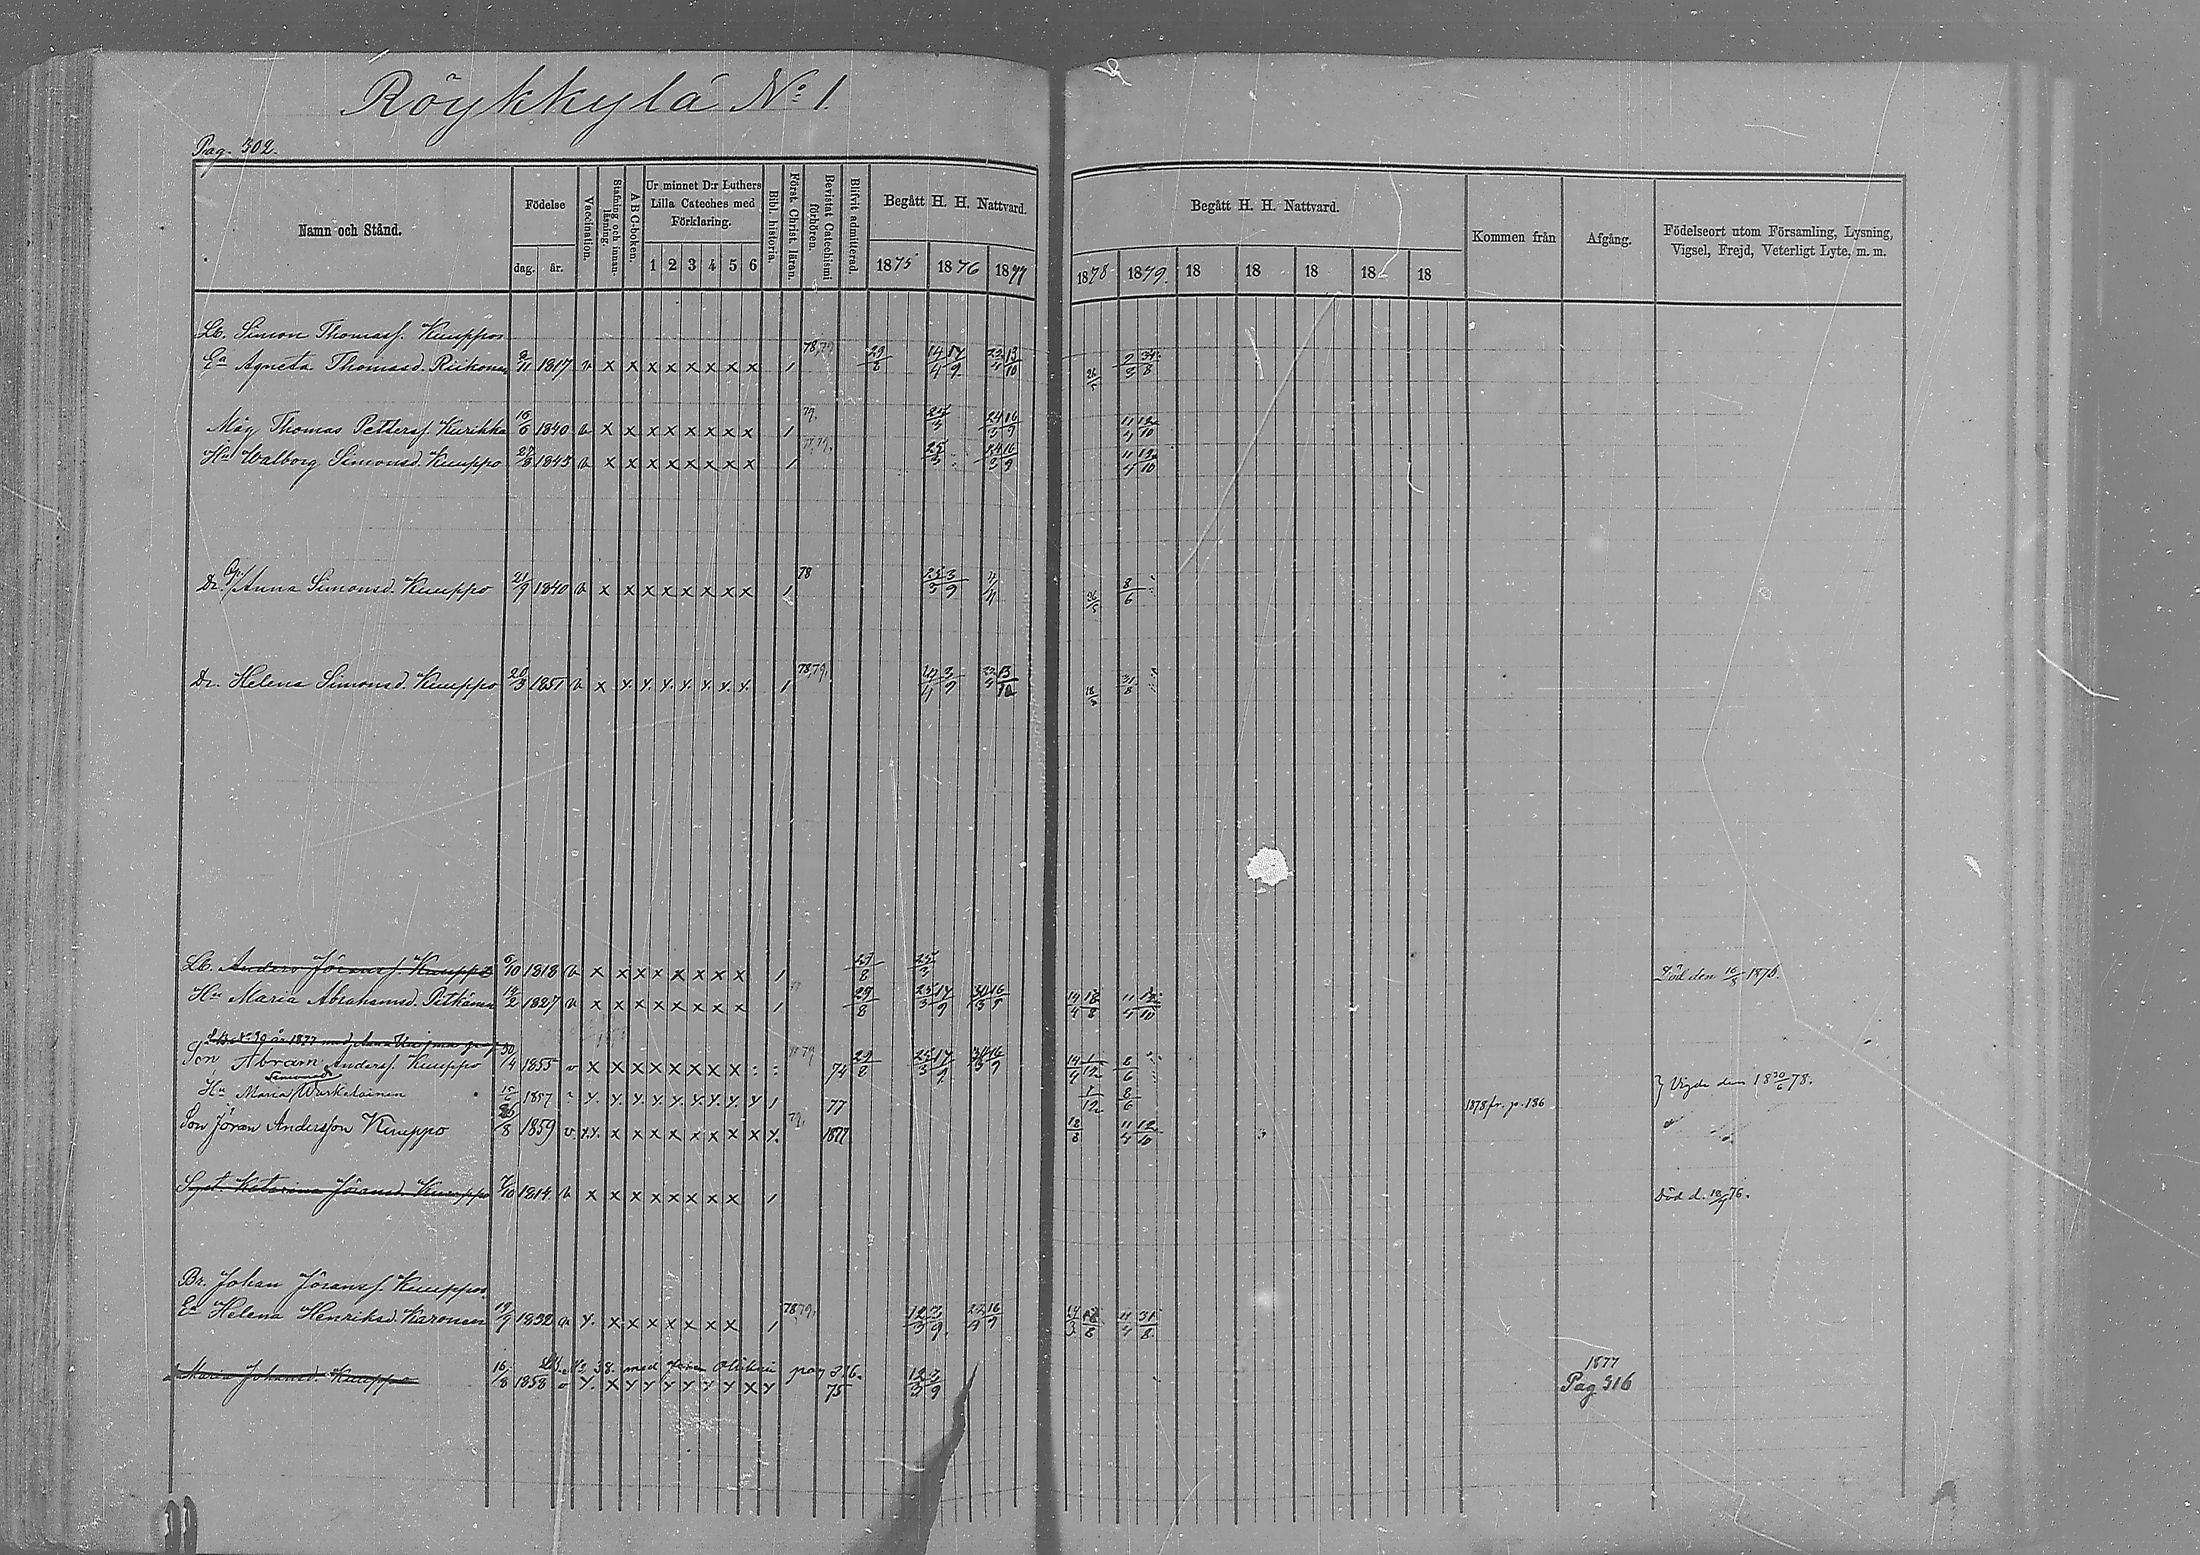 Röykkylä No: 1.
Pag. 302.
Namn och Stånd.
Födelse
dag. år.
Vaccination.
Stafning och innanläsning.
A B C-boken.
Ur minnet D:r Luthers Lilla Cateches med Förklaring.
1 2 3 4 5 6
Bibl. historia.
Först. Christ. läran.
Bevistat Catechismi förhören.
Blifvit admitterad.
Begått H. H. Nattvard.
1875 1876 1877
Begått H. H. Nattvard.
1878 1879. 18 18 18 18 18
Kommen från
Afgång.
Födelseort utom Församling, Lysning, Vigsel, Frejd, Veterligt Lyte, m. m.
Lb. Simon Thomass. Kuuppos
Ea Agneta Thomasd. Riikonen 2/11 1817 v x x x x x x x x 1 78,79 29/8 14/4 17/9 13/10 26/5 2/3 31/8
Måg Thomas Petterss. Kurikka 16/6 1840 v x x x x x x x x 1 79. 25/3 24/3 16/9 11/4 12/10
Hu Walborg Simonsd. Kuuppo 1845 v x x x x x x x x 1 25/3 24/3 16/9 11/4 12/10
Dr. Anna Simonsd. Kuuppo 21/9 1840 v x x x x x x x x 1 78 3/9 4/4 26/5 8/6
Dr. Helena Simonsd. Kuuppo 20/3 1851 v x x x x x x x x 1 78,79, 3/9 13/10 31/8
Lb. Anders Jöranss. Kuuppo 6/10 1818 v x x x x x x x x 1 29/8 25/3 Död den 1876.
Hu Maria Abrahamsd. Pitkänen 1827 v x x x x x x x x 1 29/8 25/3 17/9 16/9 14/4 18/8 11/4 12/10
Son Abram Anderss. Kuuppo 30/4 1855 v x x x x x x x x 79 74 29/8 25/3 17/9 14/4 1/12 8/6
Hu Maria Simonsd. Wärkeloinen 15/6 1857 1 77 1/12 8/6 1878 fr. p. 186 } Vigde den 18 30/6 78.
Son Jöran Andersson Kuuppo 26/8 1859 v 79, 1877 18/8 11/4 12/10
Syst. Katarina Jöransd. Kuuppo 7/10 1814 v x x x x x x x x 1 Död d. 76.
Br. Johan Jöranss. Kuuppos
Ea Helena Henriksd. Karonen 19/9 1832 v x x x x x x x x 1 78 79, 12/3 3/9 16/9 14/3 18/8 11/4 31/8
Lb. No 38. med pag 316.
Maria Johansd. Kuuppo 16/8 1858 v 75 12/3 3/9 1877 Pag 316